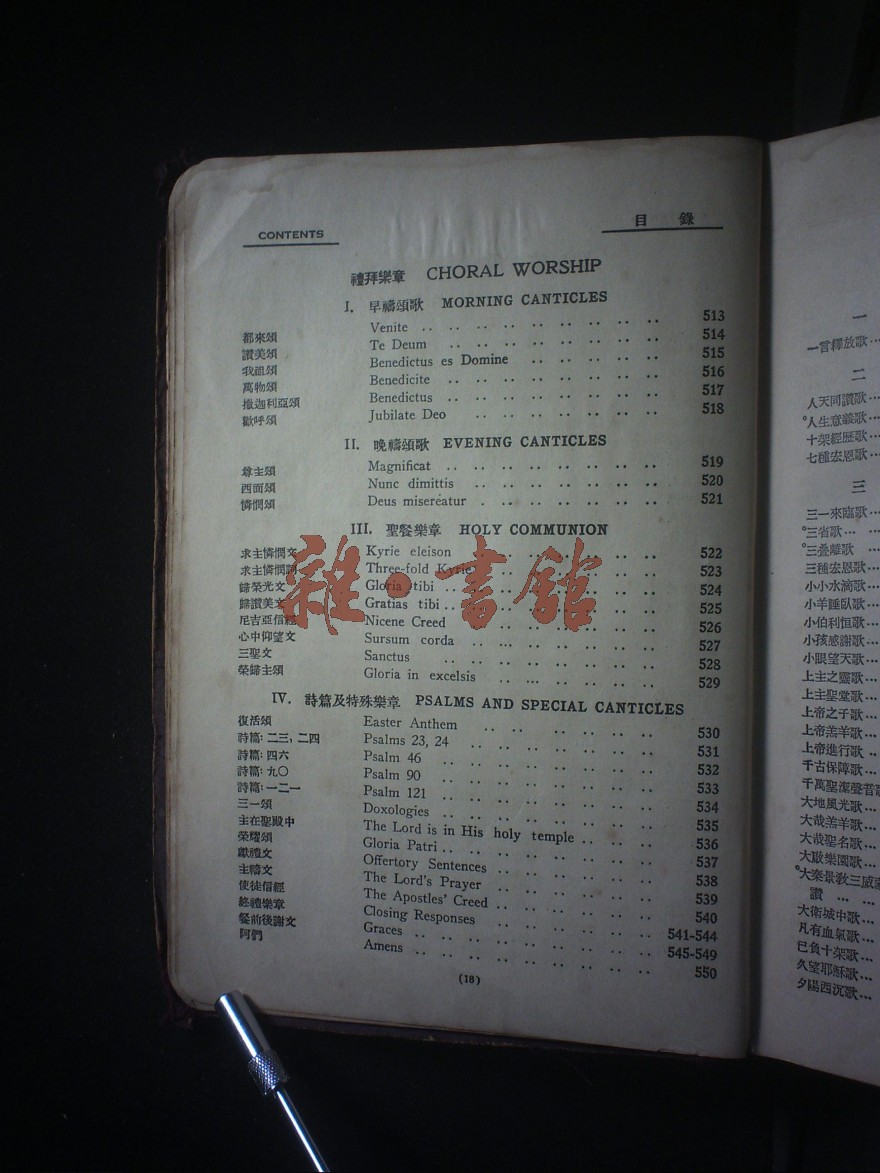 CONTENTS 目 錄
禮拜樂章 CHORAL WORSHIP
I. 早禱頌歌 MORNING CANTICLES
都來頌 Venite .. .. .. .. .. .. .. .. 513
讚美頌 Te Deum .. .. .. .. .. .. .. 514
我祖頌 Benedictus es Domine .. .. .. .. .. 515
萬物頌 Benedicite .. .. .. .. .. .. .. 516
撒迦利亞頌 Benedictus .. .. .. .. .. .. .. 517
歡呼頌 Jubilate Deo .. .. .. .. .. .. .. 518
II. 晚禱頌歌 EVENING CANTICLES
尊主頌 Magnificat .. .. .. .. .. .. .. .. 519
西面頌 Nunc dimittis .. .. .. .. .. .. .. 520
憐憫頌 Deus misereatur . .. .. .. .. .. .. 521
III. 聖餐樂章 HOLY COMMUNION
求主憐憫文 Kyrie eleison .. .. .. .. .. .. .. 522
求主憐憫 Three-fold Kyrie .. .. .. .. .. .. 523
歸榮光文 Gloria tibi .. .. .. .. .. .. .. 524
歸讚美文 Gratias tibi .. .. .. .. .. .. .. 525
尼吉亞信經 Nicene Creed .. .. .. .. .. .. .. 526
心中仰望文 Sursum corda .. ... .. .. .. .. 527
三聖文 Sanctus .. .. .. .. .. .. .. .. 528
榮歸主頌 Gloria in excelsis .. ... .. .. .. .. 529
IV. 詩篇及特殊樂章 PSALMS AND SPECIAL CANTICLES
復活頌 Easter Anthem .. .. .. .. .. .. 530
詩篇:二三,二四 Psalms 23, 24 .. .. .. .. .. .. .. 531
詩篇:四六 Psalm 46 .. .. .. .. .. .. .. .. 532
詩篇:九〇 Psalm 90 .. .. .. .. .. .. .. .. 533
詩篇:一二一 Psalm 121 .. .. .. .. .. .. .. .. 534
三一頌 Doxologies .. .. .. .. .. .. .. .. 535
主在聖殿中 The Lord is in His holy temple .. .. .. 536
榮耀頌 Gloria Patri .. .. .. .. .. .. .. .. 537
獻禮文 Offertory Sentences .. .. .. .. .. .. 538
主禱文 The Lord's Prayer .. .. .. .. .. .. 539
使徒信經 The Apostles' Creed .. .. .. .. .. .. 540
終禮樂章 Closing Responses .. .. .. .. .. 541-544
餐前後謝文 Graces .. .. .. .. .. .. .. .. 545-549
阿們 Amens .. .. .. .. .. .. .. .. .. 550
(18)
雜·書館
一
一言釋放歌…
二
人天同讚歌…
°人生意義歌…
十架經歷歌…
七種宏恩歌…
三
三一來臨歌…
°三省歌… …
°三疊離歌 …
三種宏恩歌…
小小水滴歌…
小羊睡臥歌…
小伯利恒歌…
小孩感謝歌…
小眼望天歌…
上主之靈歌…
上主聖堂歌…
上帝之子歌…
上帝羔羊歌…
上帝進行歌…
千古保障歌…
千萬聖潔聲音歌
大地風光歌…
大哉羔羊歌…
大哉聖名歌…
大啟樂園歌…
°大秦景敎三威蒙
讚 … …
大衛城中歌…
凡有血氣歌…
已負十架歌…
久望耶穌歌…
夕陽西沉歌…